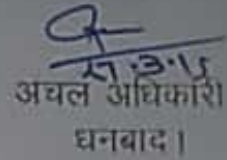 27.3.15
अंचल अधिकारी
धनबाद।